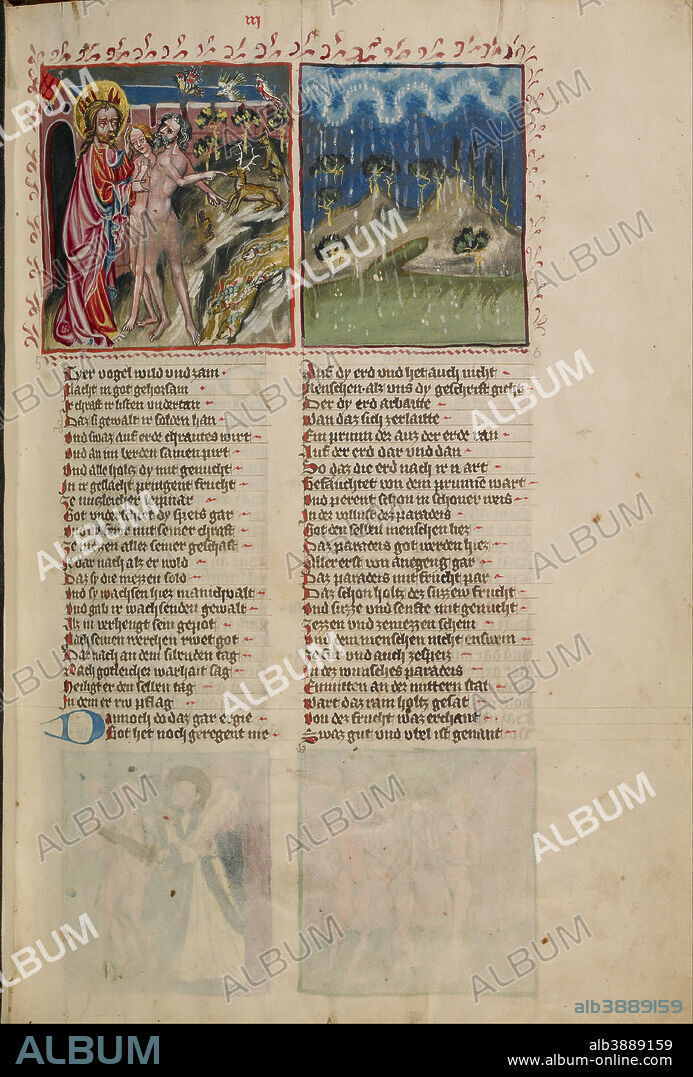 iij
5
Tyer vogel wild vnd zam
Macht in got gehorsam
Ir chrafft ir listen vndertan
Daz si gewalt ir solden han
Vnd swaz auf erde chrautes wirt
Vnd an im berden samen pirt
Vnd alle holtz dy mit genucht
In ir geslacht pringent frucht
Got
mit seiner chrafft
Ze nutzen aller seiner geschaft
dar nach als er wold
Daz sy die niezzen sold
Vnd sy wachsen hiez manichualt
Vnd gab ir wachsenden gewalt
Als in verhengt sein gepot
Nach seinen werchen rwet got
Dar nach an dem sibenden tag
Nach gotleicher warhait sag
Heiligt er den selben tag
In dem er rw pflag
Dannoch do daz gar ergie
Got het noch geregent nie
6
Auf dy erd vnd het auch nicht
Menschen als vns dy geschrift gicht
Der dy erd arbaitte
Wan daz sich zerlaitte
Ein prunn der auz der erde ran
Auf der erd dar vnd dan
So daz die erd nach ir art
Gefauchtet von dem prunne wart
Vnd perent schon in schoner weis
In der wollust des paradeis
Got den selben menschen liez
Daz paradeis got werden hiez
Aller erst von anegeng gar
Daz paradeis mit frucht par
Daz schon holtz der suzzen frucht
Vnd suzze vnd senfte mit genucht
Ze ezzen vnd ze niezzen schein
Vnd dem menschen nicht enswein
Ze sat vnd auch ze speis
In des wunsches paradeis
Enmitten an der mittern stat
Wart daz ein holtz gesat
Von der frucht waz erchant
Swaz gut vnd vbel ist genant
ALBUM
alb3889159
ALBUM
alb3889159
www.album-online.com